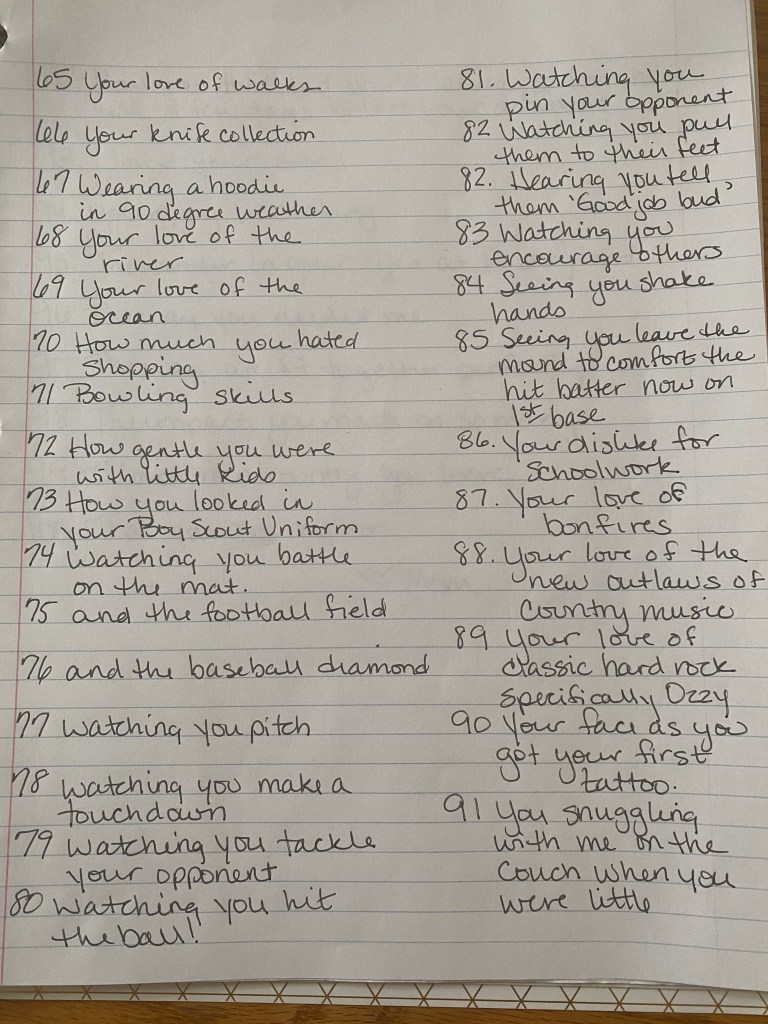 65 Your love of walks
66 Your knife collection
67 Wearing a hoodie
in 90 degree weather
68 Your love of the
river
69 Your love of the
ocean
70 How much you hated
Shopping
71 Bowling skills
72 How gentle you were
with little kids
73 How you looked in
your Boy Scout Uniform
74 Watching you battle
on the mat.
75 and the football field
76 and the baseball diamond
77 Watching you pitch
78 Watching you make a
touchdown
79 Watching you tackle
your opponent
80 Watching you hit
the ball!
81. Watching you
pin your opponent
82 Watching you pull
them to their feet
82. Hearing you tell
them 'Good job bud'
83 Watching you
encourage others
84 Seeing you shake
hands
85 Seeing you leave the
mound to comfort the
hit batter now on
1st base
86. Your dislike for
schoolwork
87. Your love of
bonfires
88. Your love of the
new outlaws of
Country music
89 Your love of
classic hard rock
specifically Ozzy
90 Your face as you
got your first
tattoo.
91 You snuggling
with me on the
couch when you
were little